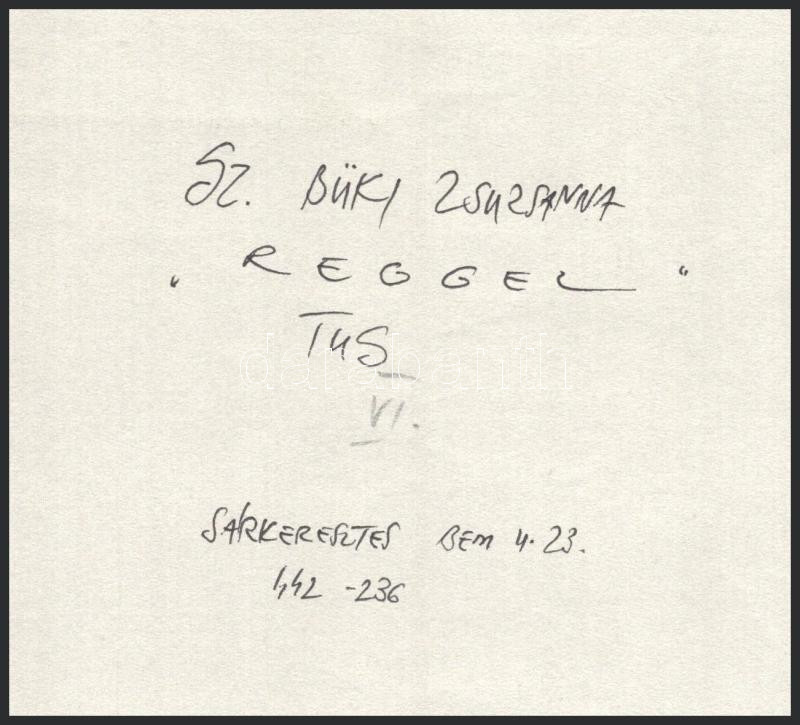 Sz. BÜKI ZSUZSANNA
„ REGGEL “
TUS
VI.
SÁRKERESZTES BEM U. 23.
442 -236